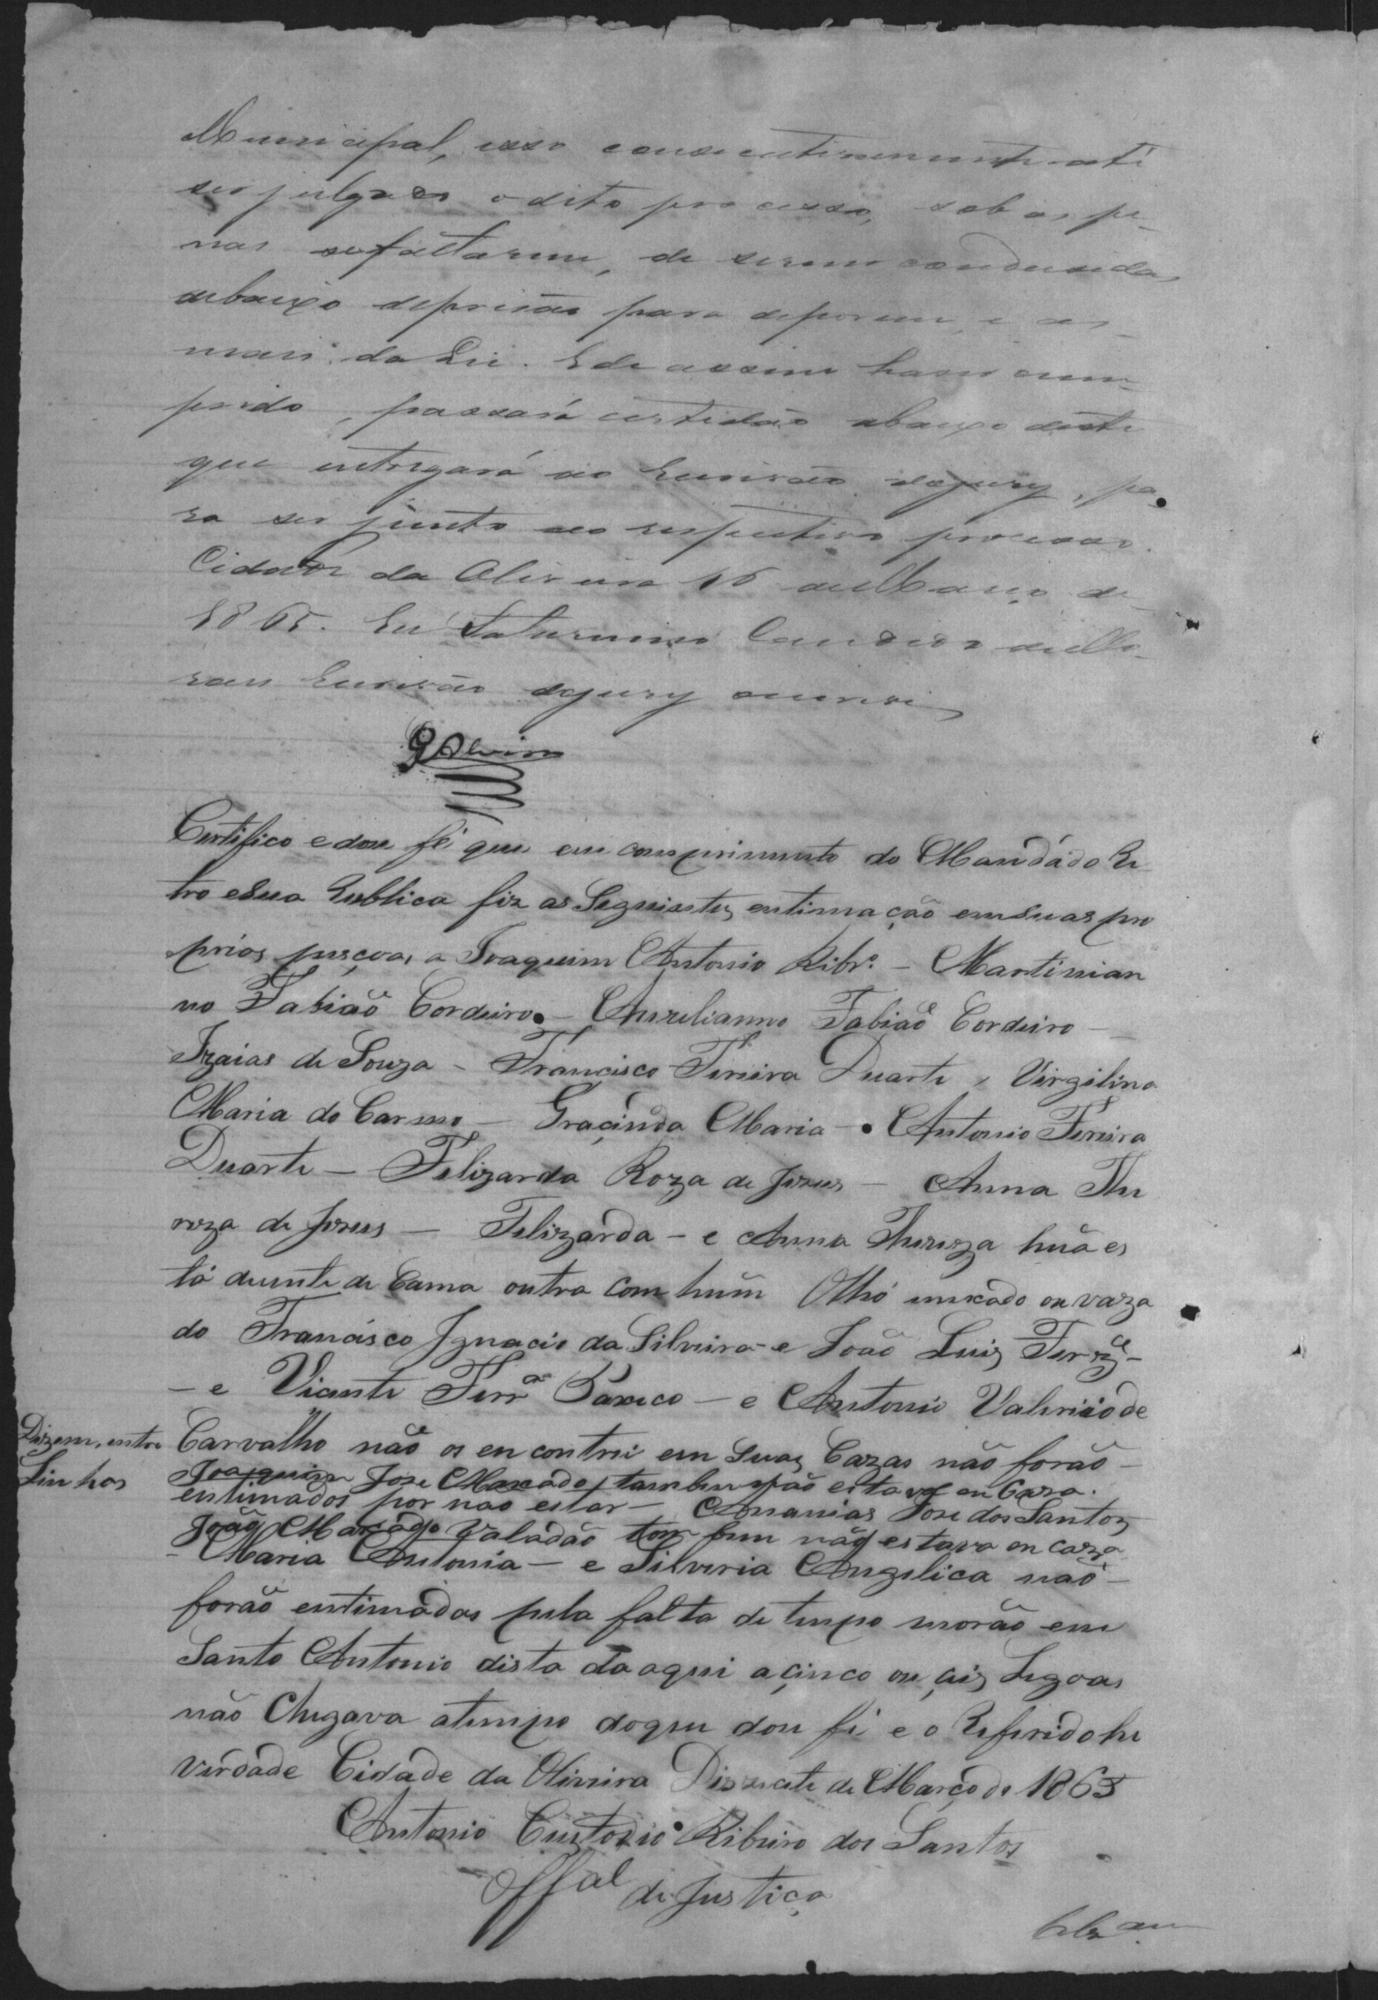 Municipal, esso consecutivamente até
ser julgado o dito processo, sob as pe-
nas se faltarem, de serem condusidas
debaixo de prisão para deporem, e as
mais da Lei. E de assim haver cum-
prido, passará certidão abaixo deste
que entregará ao Escrivão do jury, pa-
ra ser junto ao respectivo processo.
Cidade da Oliveira 16 de Março de
1865. Eu Saturnino Candido de Mo-
raes Escrivão do jury escrevi
Certifico e dou fé que em comprimento do Mandádo Re
tro e Sua Rublica fiz as Seguintes entimação em Suas pro
prios pesçoas a Joaquim Antonio Ribrº - Martinian
no Fabião Cordeiro - Aurelianno Fabião Cordeiro -
Izaias de Souza - Francisco Fereira Duarte, Virgilina
Maria do Carmo - Graçinda Maria - Antonio Fereira
Duarte - Felizarda Roza de Jezus - Anna The
roza de Jezus - Felizarda - e Anna Thereza huã es
tá duente de Cama outra com hum Olho vaza
do Francisco Ignacio da Silveira - e João Luiz
- e Vicente Ferrª Paxeco - e Antonio Valerio de
Dizem, entre Carvalho não os encontrei em Suas Cazas não forão -
Linhas Joaquim Jose Maxado tambem não estava em Caza.
entimados por não estar - Ananias Jose dos Santos
João Maxado Valadão tom bem não estava en caza
- Maria Antonia - e Silveria Angelica não -
forão entimadas pela falta de tempo morão em
Santo Antonio dista da aqui a çinco ou çeis Legoas
não Chegava atempo do que dou fé e o Referido he
verdade Cidade da Oliveira Dizacete de Março de 1865
Antonio Custodio Ribeiro dos Santos
Offal de Justiça